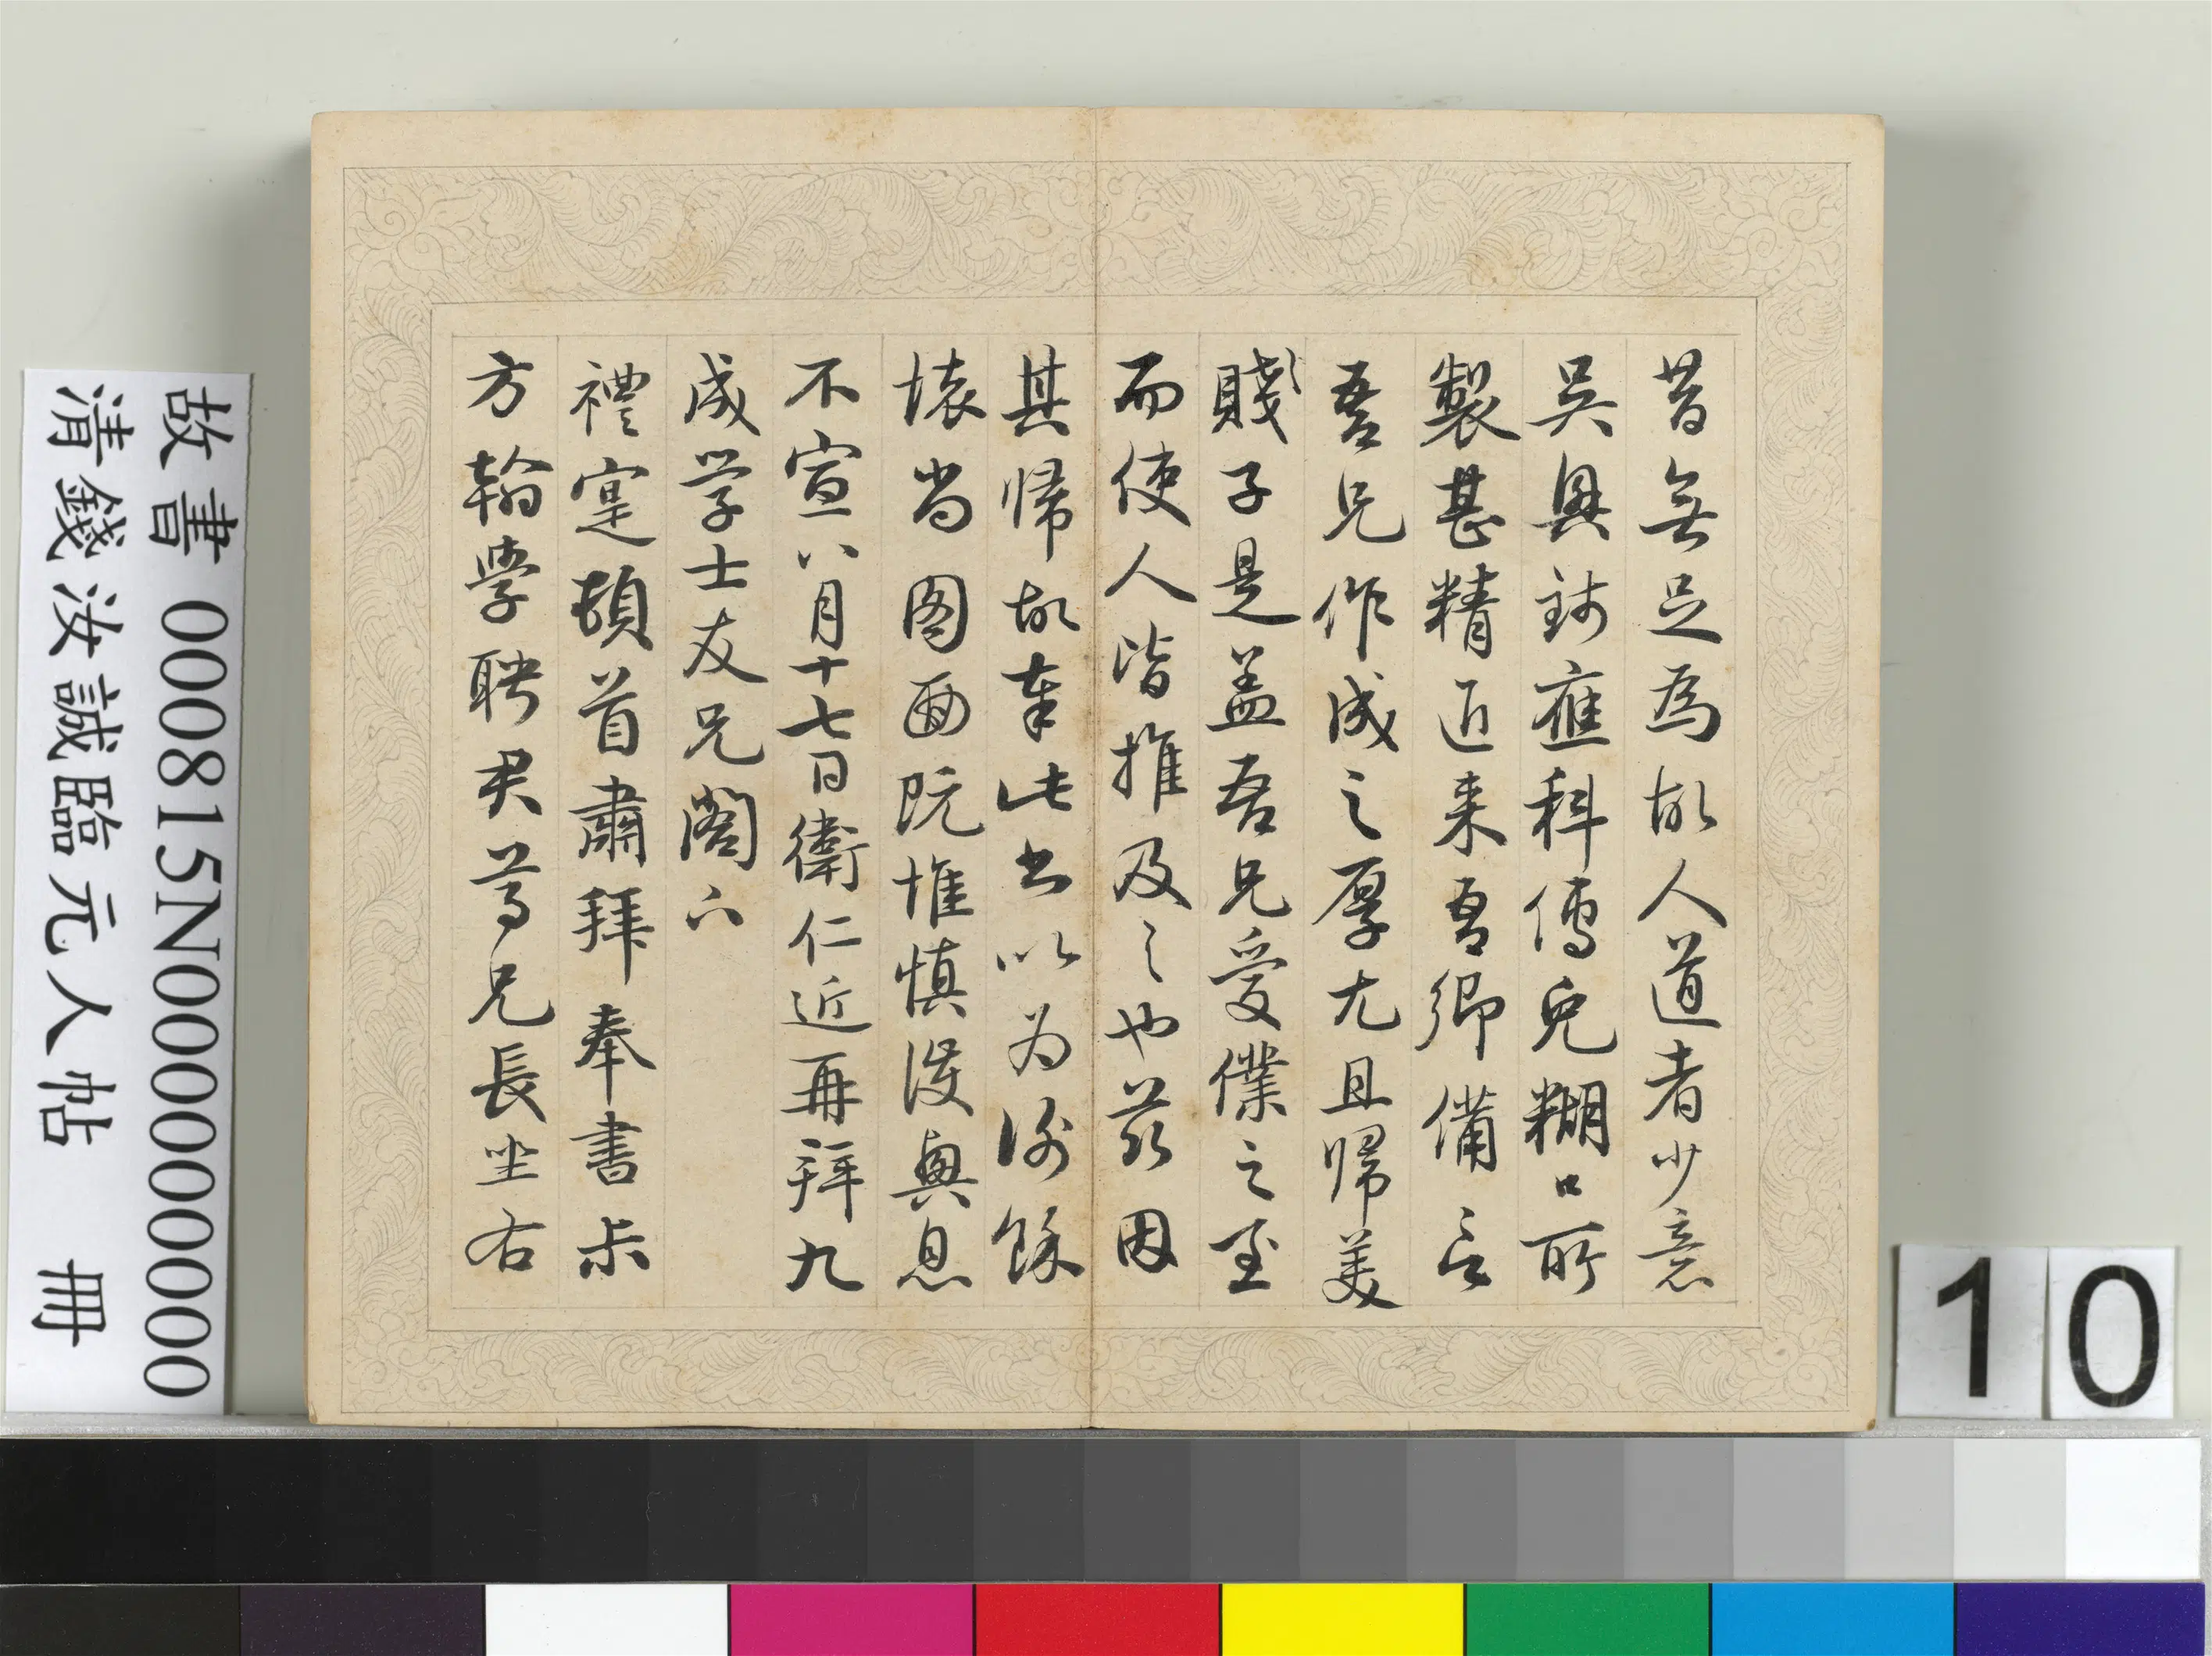 昔無足為故人道者少意
吳興錢應科傳兒糊口所
製甚精近來吾鄉備言
吾兄作成之厚尤且歸美
賤子是蓋吾兄愛僕之至
而使人皆推及之也茲因
其歸故奉此書以為謝餘
懷當圖面既惟慎護興息
不宣八月十七日衛仁近再拜九
成學士友兄閣下
禮寔頓首肅拜奉書示
方翰學聘君尊兄長坐右
故書 000815N000000000
清錢汝誠臨元人帖 冊
10